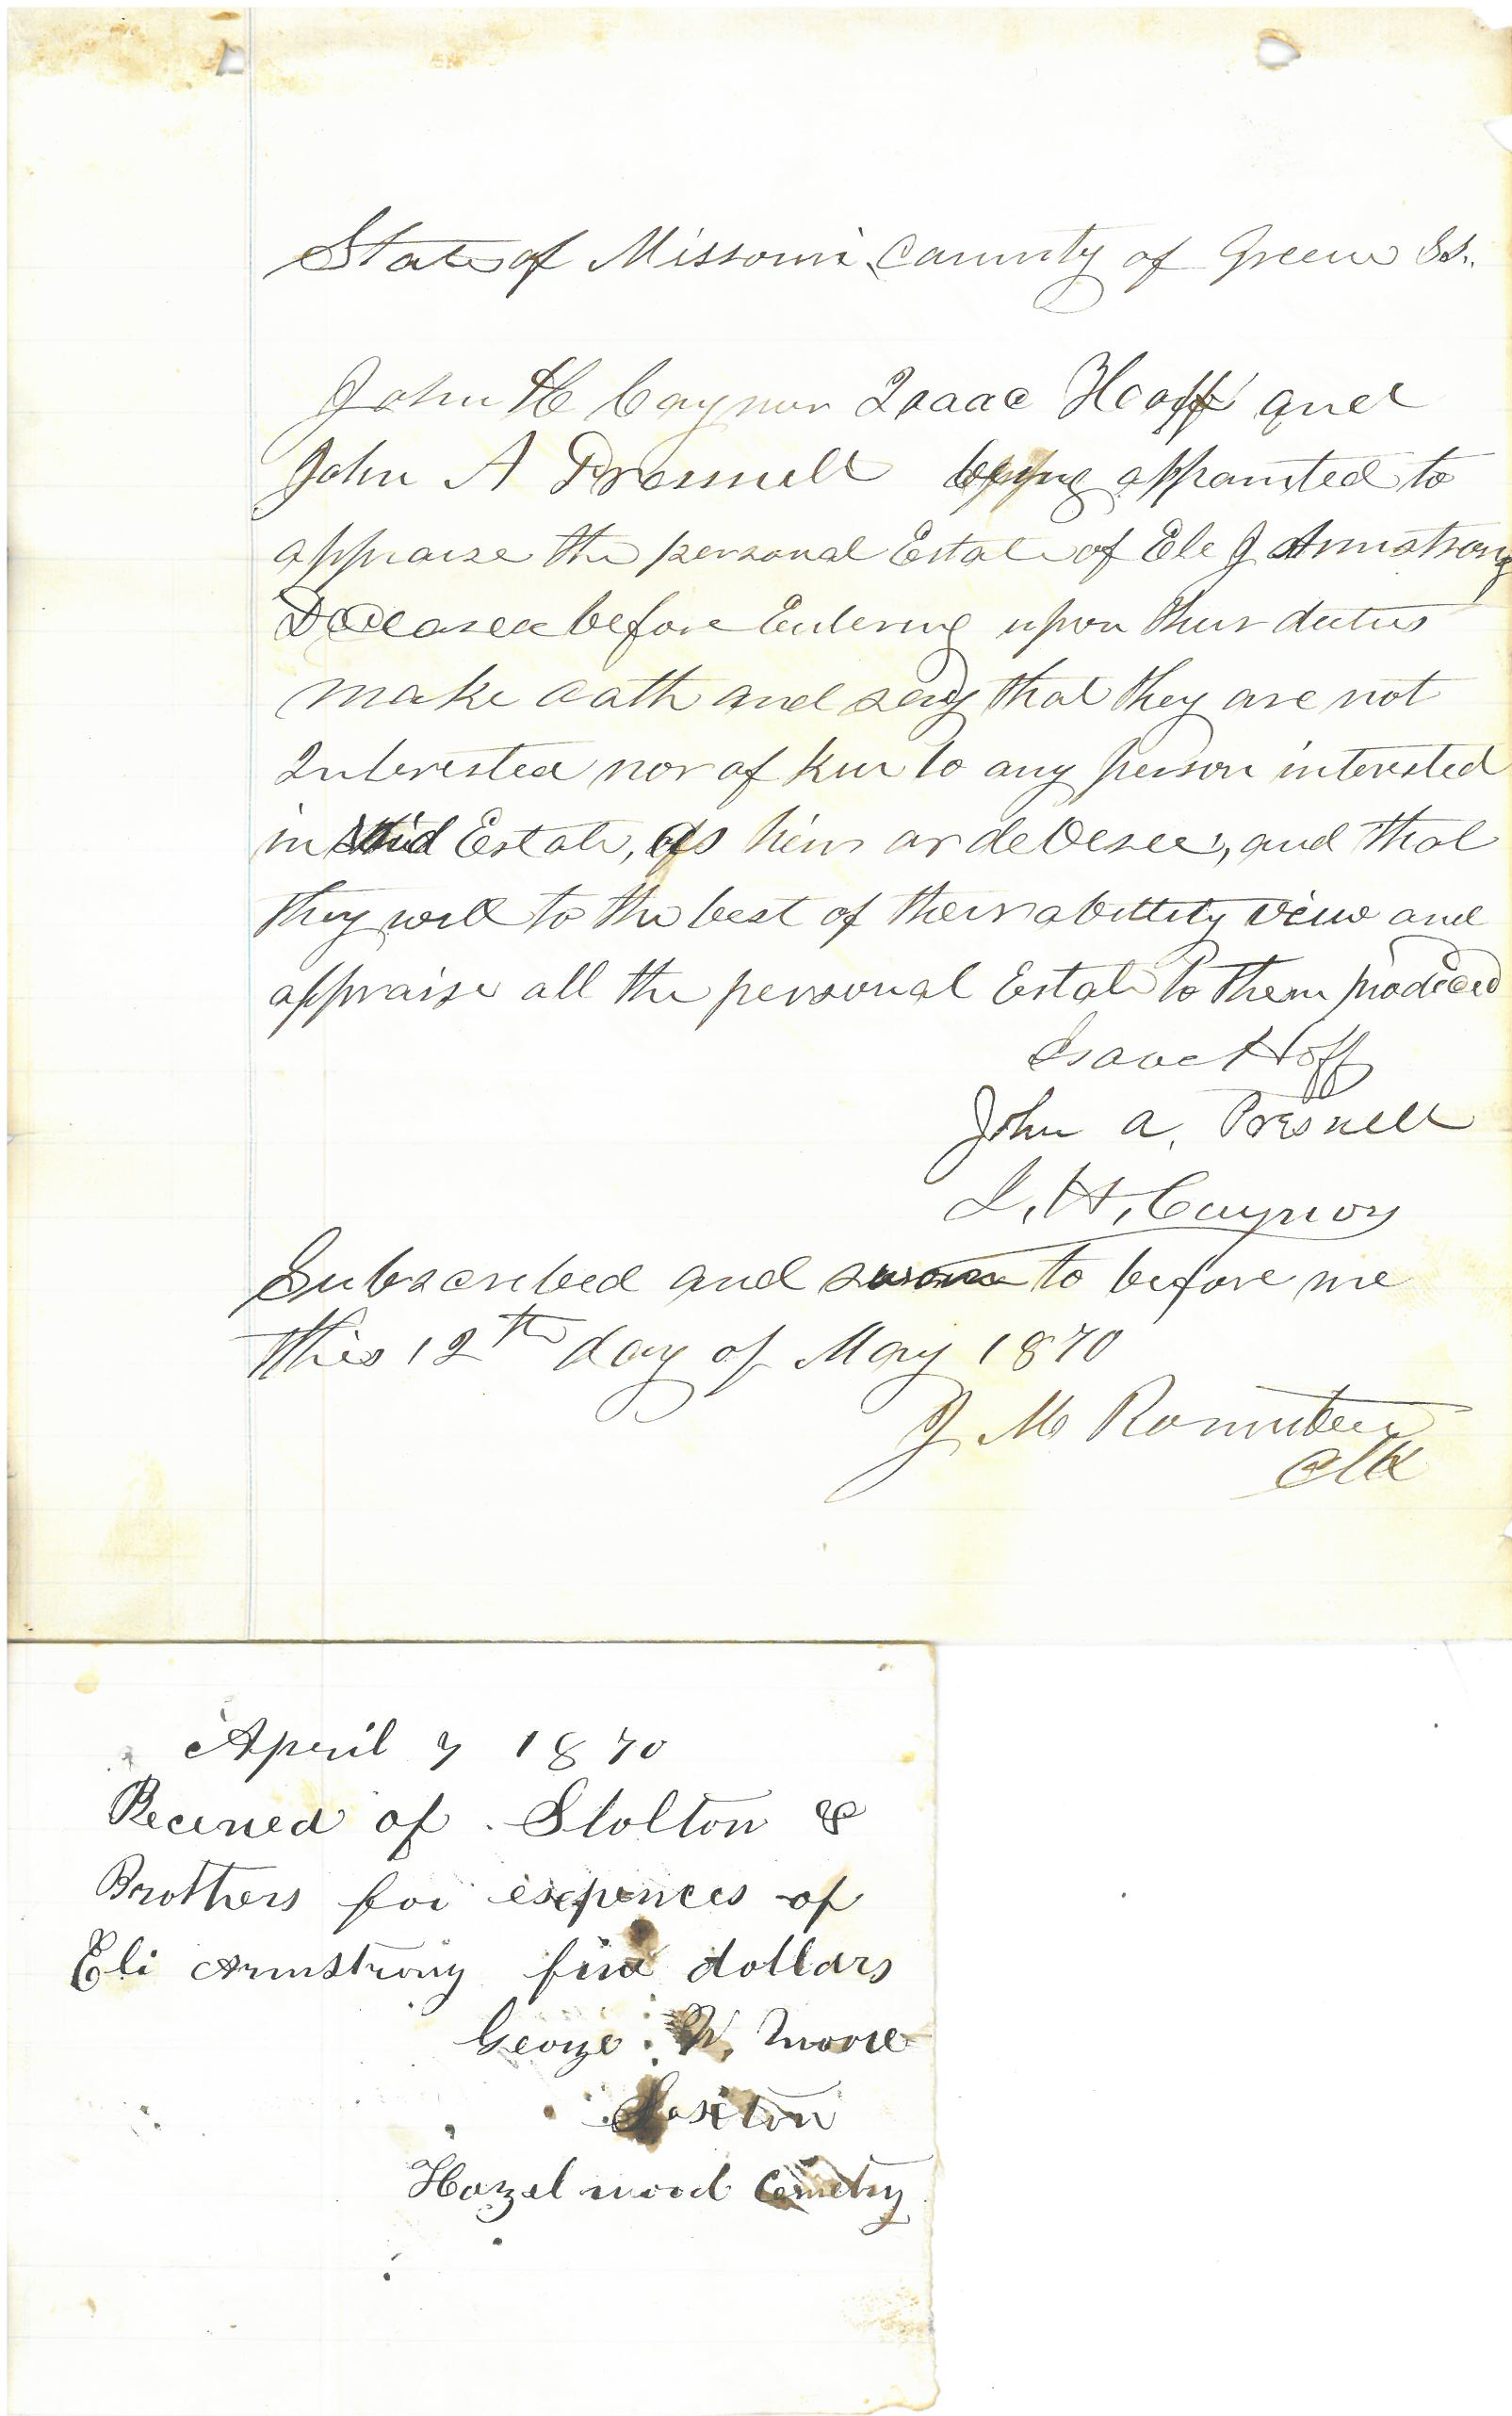 State of Missouri County of Greene SS.
John H Caynor Isaac Hooff and
John A Presnell being appointed to
appraise the personal Estate of Ele J Armstrong
Deceased before Entering upon their duties
make oath and say that they are not
Interested nor of kin to any person interested
in said Estate, as heirs or deVesee, and that
they will to the best of their abillity view and
appraise all the personal Estate to them produced
Isaac Hoff
John A. Presnell
J. H. Caynor
Subscribed and sworn to before me
this 12th day of May 1870
J M
Clk
April 7 1870
Received of Stolton &
Brothers for expences of
Eli Armstrong five dollars
George W. Moore
Sexton
Hazelwood Cemetry